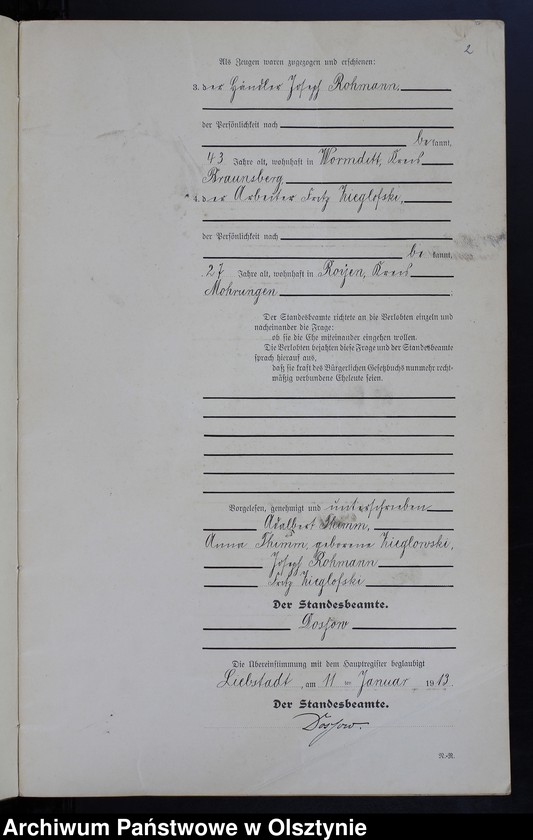 2
Als Zeugen waren zugezogen und erschienen:
3. der Händler Joseph Rohmann,
der Persönlichkeit nach
be kannt,
43 Jahre alt, wohnhaft in Wormditt, Kreis
Braunsberg
4. der Arbeiter Fritz Kieglofski,
der Persönlichkeit nach
be kannt,
27 Jahre alt, wohnhaft in Royen, Kreis
Mohrungen.
Der Standesbeamte richtete an die Verlobten einzeln und
nacheinander die Frage:
ob sie die Ehe miteinander eingehen wollen.
Die Verlobten bejahten diese Frage und der Standesbeamte
sprach hierauf aus,
daß sie kraft des Bürgerlichen Gesetzbuchs nunmehr recht-
mäßig verbundene Eheleute seien.
Vorgelesen, genehmigt und unterschrieben
Adalbert Thimm,
Anna Thimm, geborene Kieglowski,
Joseph Rohmann
Fritz Kieglofski
Der Standesbeamte.
Dossow
Die Übereinstimmung mit dem Hauptregister beglaubigt
Liebstadt, am 11 ten Januar 1913.
Der Standesbeamte.
Dossow.
N.-R.
Archiwum Państwowe w Olsztynie